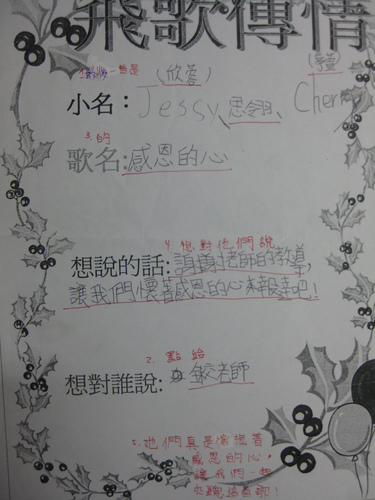 飛歌傳情
(欣蓉)
小名：Jessy、思翎、Cher
3. 的
歌名：感恩的心
4. 想對他們說
想說的話：謝謝老師的教導，
讓我們懷著感恩的心來報幸吧！
2. 點給
想對誰說：老師
5. 他們真是懷著
感恩的心，
讓我們一起
來聽這首歌！